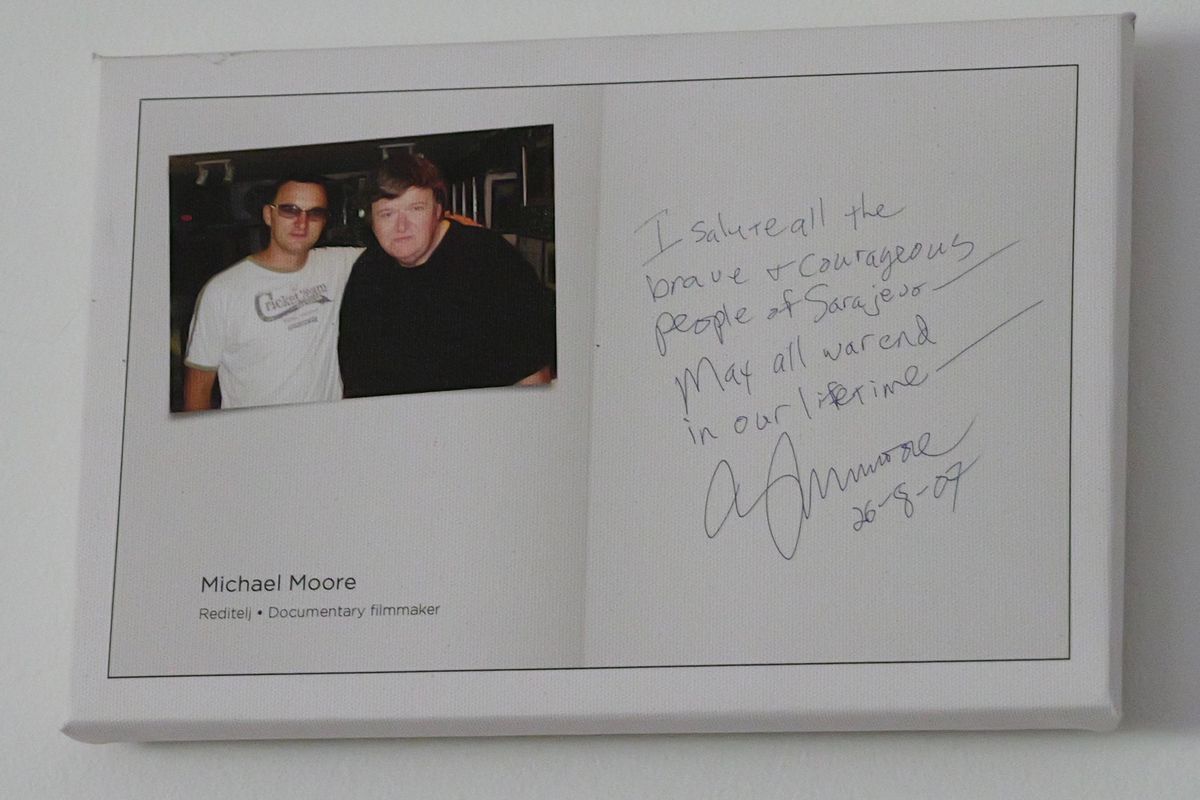 Cricket Team
I salute all the
brave + courageous
people of Sarajevo —
May all war end
in our lifetime —
26-8-07
Michael Moore
Reditelj • Documentary filmmaker